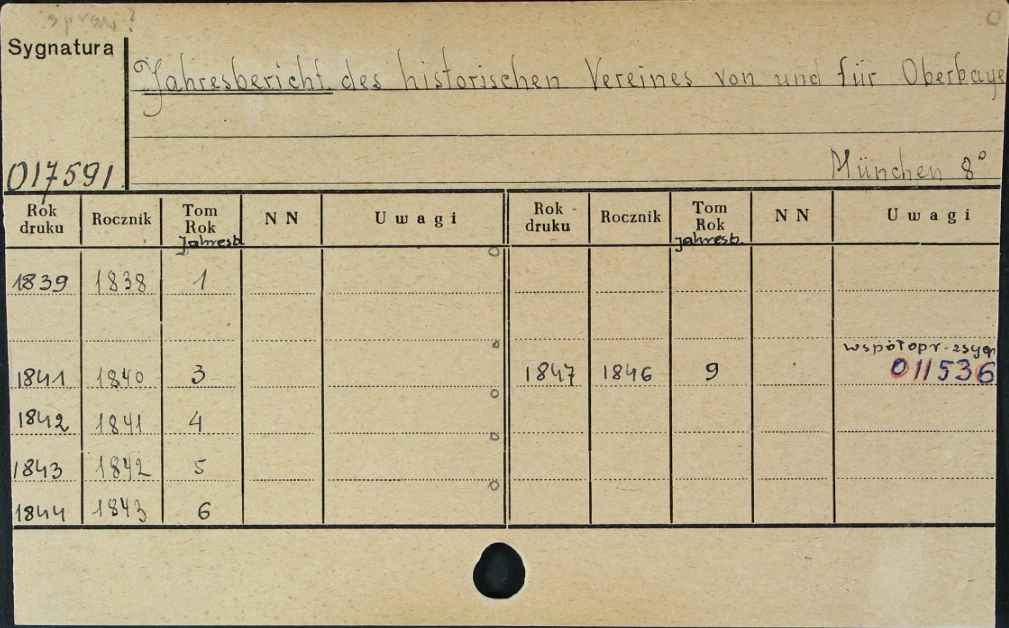 Sygnatura
Jahresbericht des historischen Vereines von und für Oberbaye
017591
München 8°
Rok druku Rocznik Tom Rok Jahresb. NN Uwagi Rok druku Rocznik Tom Rok Jahresb. NN Uwagi
1839 1838 1
współopr. z sygn
1841 1840 3 1847 1846 9 011536
1842 1841 4
1843 1842 5
1844 1843 6